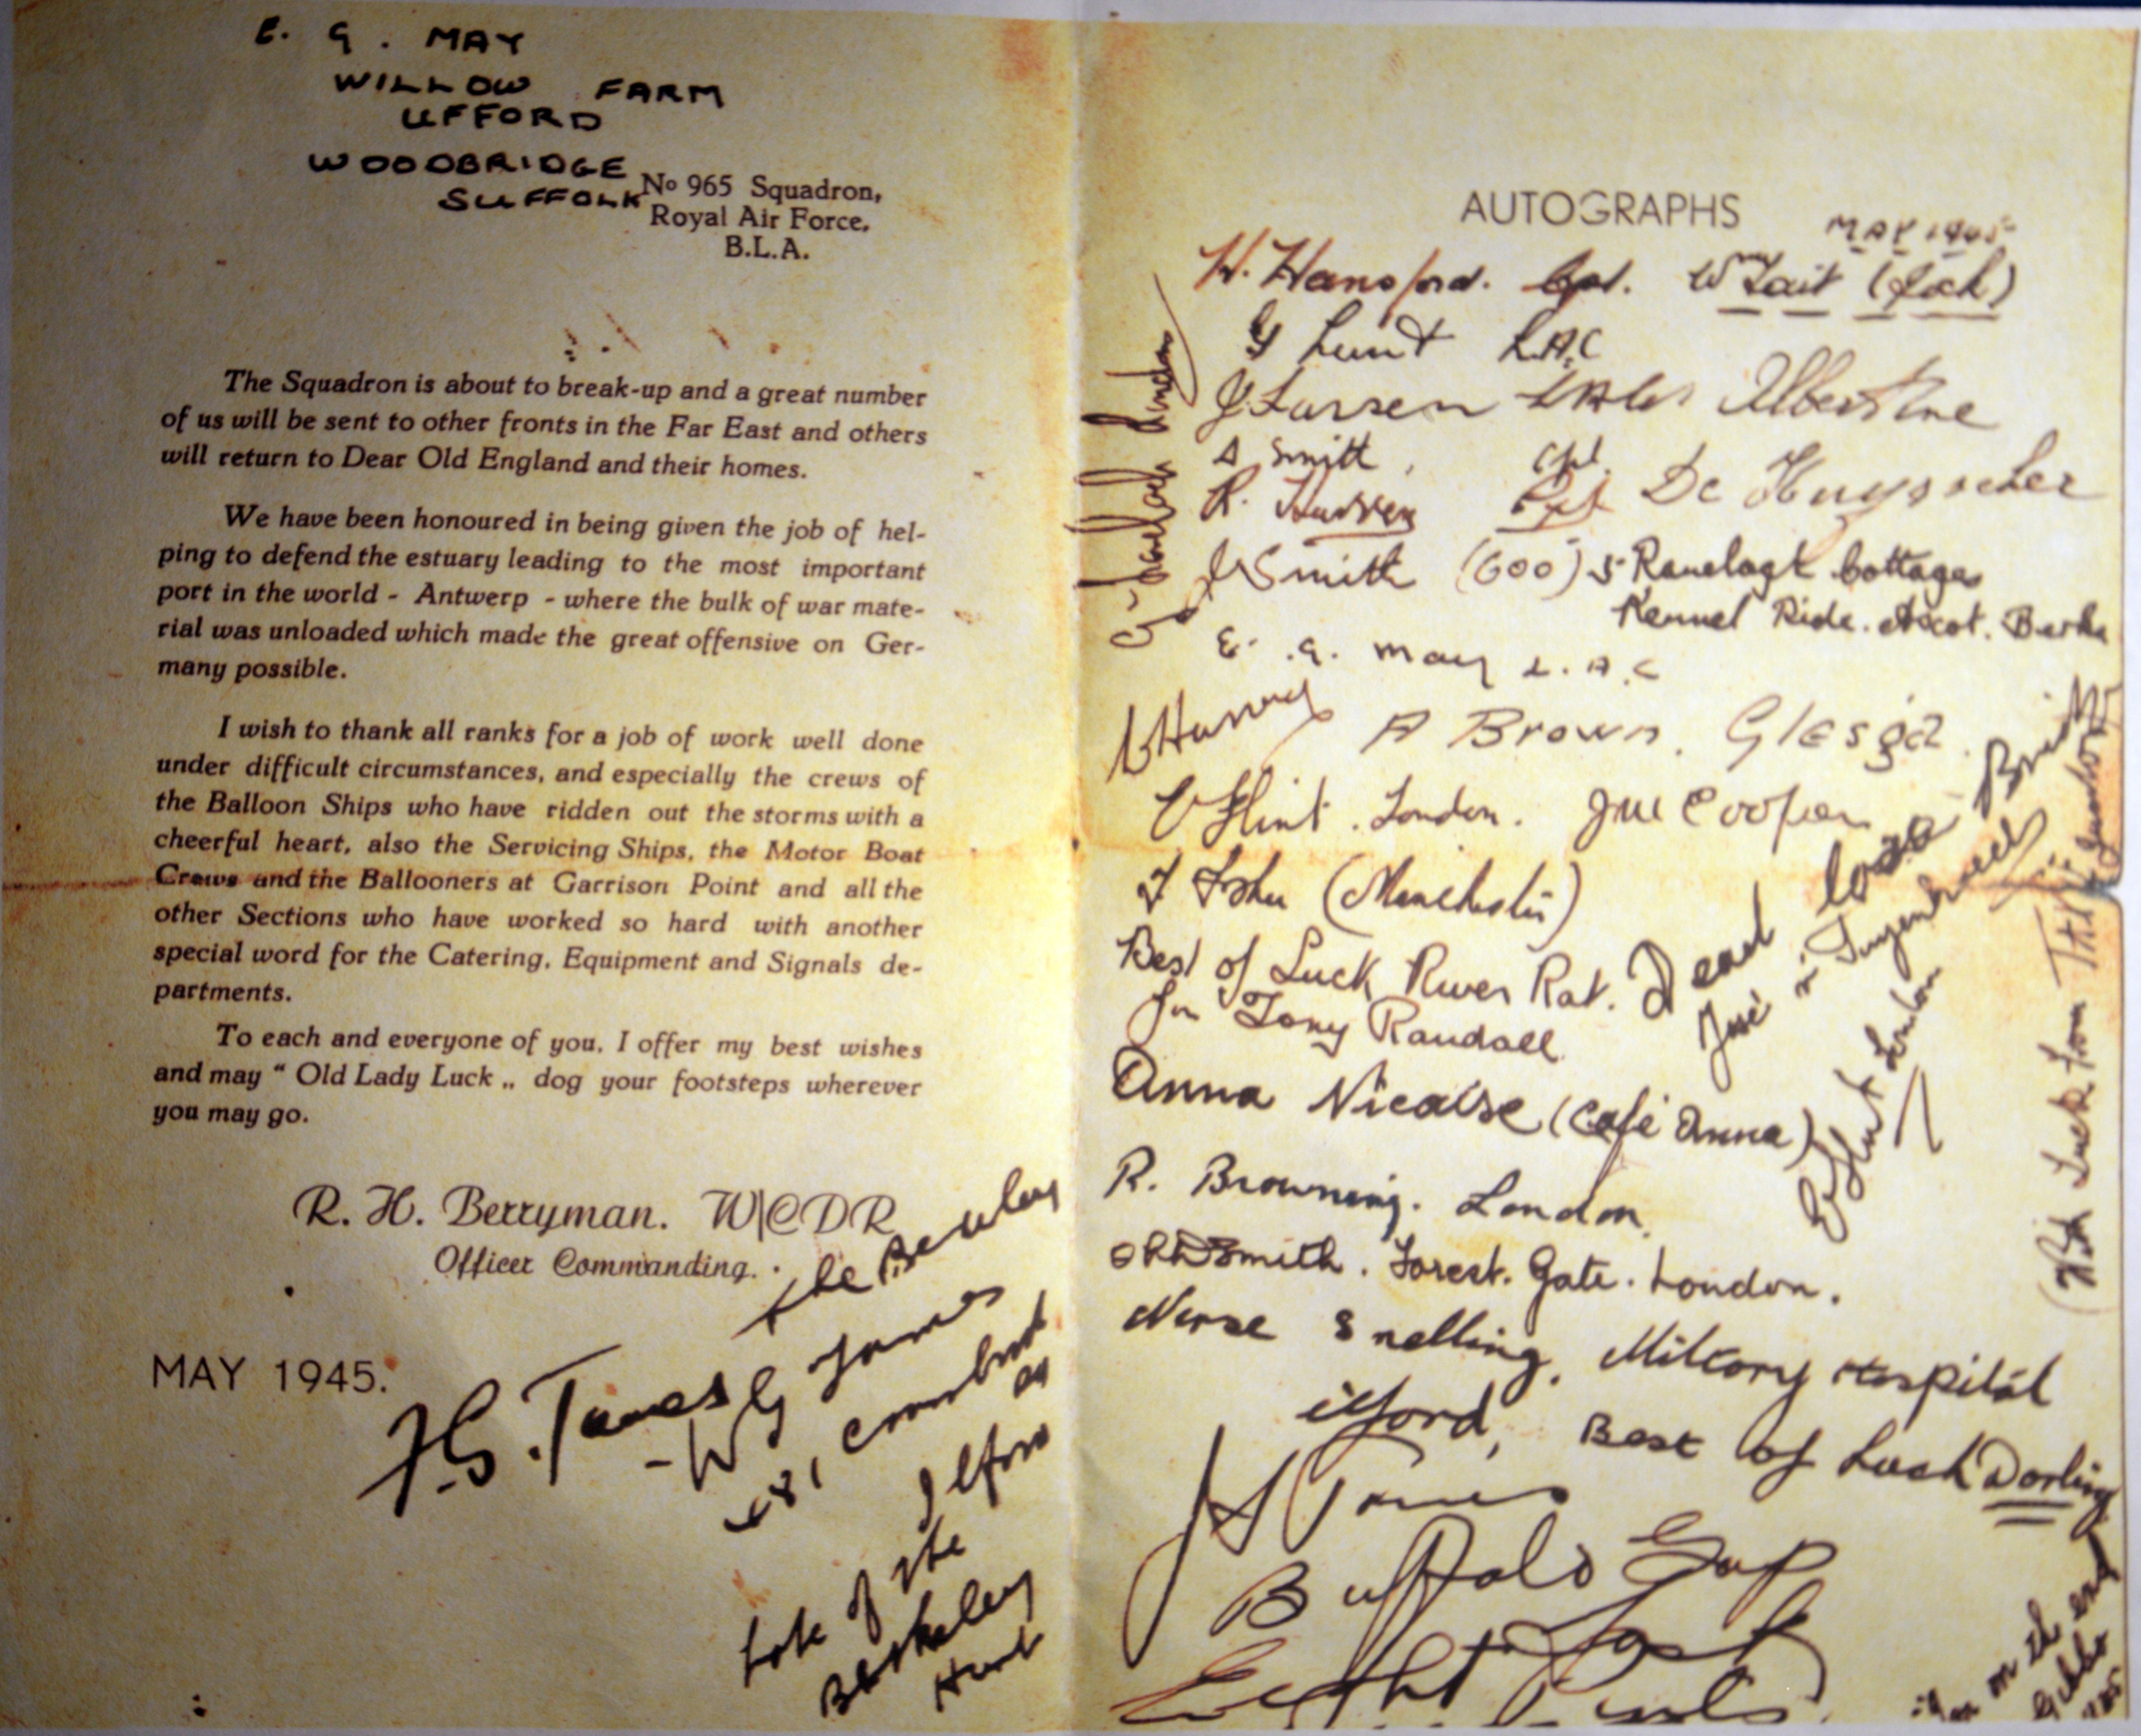 E. G. MAY
WILLOW FARM
UFFORD
WOODBRIDGE
SUFFOLK
No 965 Squadron,
Royal Air Force,
B.L.A.
The Squadron is about to break-up and a great number
of us will be sent to other fronts in the Far East and others
will return to Dear Old England and their homes.
We have been honoured in being given the job of hel-
ping to defend the estuary leading to the most important
port in the world - Antwerp - where the bulk of war mate-
rial was unloaded which made the great offensive on Ger-
many possible.
I wish to thank all ranks for a job of work well done
under difficult circumstances, and especially the crews of
the Balloon Ships who have ridden out the storms with a
cheerful heart, also the Servicing Ships, the Motor Boat
Crews and the Ballooners at Garrison Point and all the
other Sections who have worked so hard with another
special word for the Catering, Equipment and Signals de-
partments.
To each and everyone of you, I offer my best wishes
and may “ Old Lady Luck „ dog your footsteps wherever
you may go.
R. H. Berryman. W|CDR
Officer Commanding.
MAY 1945.
the
Late of the
Berkeley
Hunt
AUTOGRAPHS
MAY 1945
W. Hansford. Cpl. Wm Tait (Jock)
G Lunt L.A.C
J. Larsen Albertine
A Smith, Cpl.
R. De Huysscher
Smith (600) 5 Ranelagh Cottages
Kennel Ride. Ascot. Berks
E. G. May L.A.C
A Brown. Glesga
Flint. London. Cooper
(Manchester)
Best of Luck River Rat. Dead loss
Jon Tony Randall
Anna Nicaise (Café Anna)
R. Browning. London.
Smith. Forest. Gate. London.
Nurse Snelling, Military Hospital
ilford, Best of Luck Darling
Buffalo Gap
Last
London
Luck from